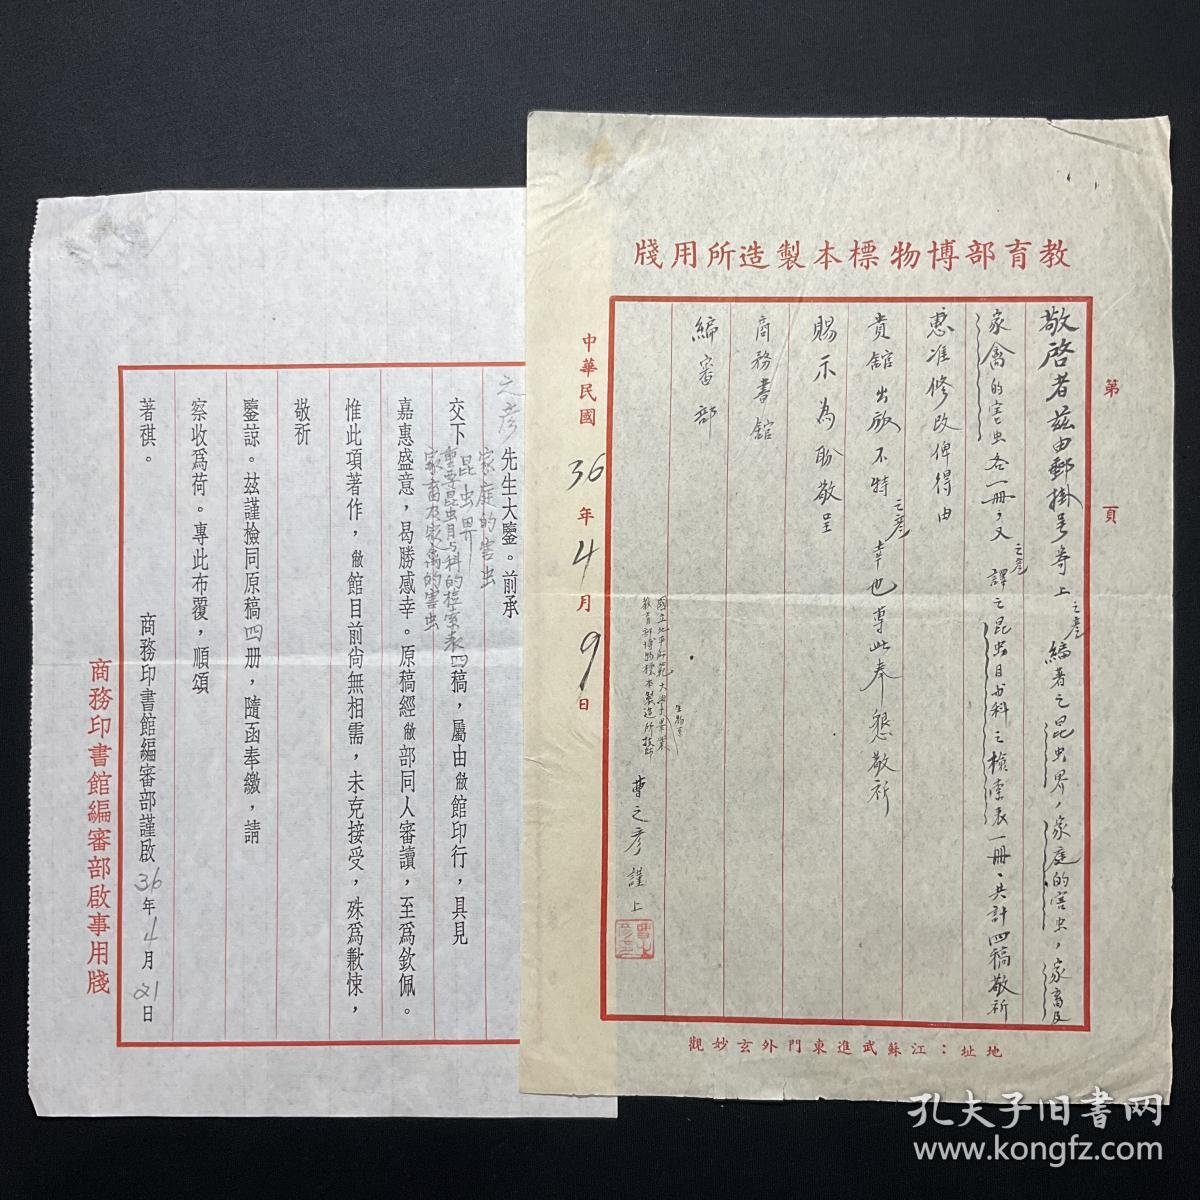 教育部博物標本製造所用牋
第　頁
敬啓者茲由郵掛号寄上之彥編著之昆虫界，家庭的害虫，家畜及
家禽的害虫各一冊，又之彥譯之昆虫目与科之檢索表一冊、共計四稿敬祈
惠准修改俾得由
貴舘出版不特之彥幸也專此奉懇敬祈
賜示為盼敬呈
商務書舘
編審部
國立北平師範大學生物系畢業
教育部博物標本製造所技師
曹之彥謹上
中華民國36年4月9日
地址：江蘇武進東門外玄妙觀
之彥先生大鑒。前承
家庭的害虫
昆虫界
重要昆虫目与科的檢索表
家畜及家禽的害虫
交下四稿，屬由敝館印行，具見
嘉惠盛意，曷勝感幸。原稿經敝部同人審讀，至爲欽佩。
惟此項著作，敝館目前尚無相需，未克接受，殊爲歉悚，
敬祈
鑒諒。茲謹檢同原稿四册，隨函奉繳，請
察收爲荷。專此布覆，順頌
著祺。
商務印書館編審部謹啟36年4月21日
商務印書館編審部啟事用牋
孔夫子旧書网
www.kongfz.com